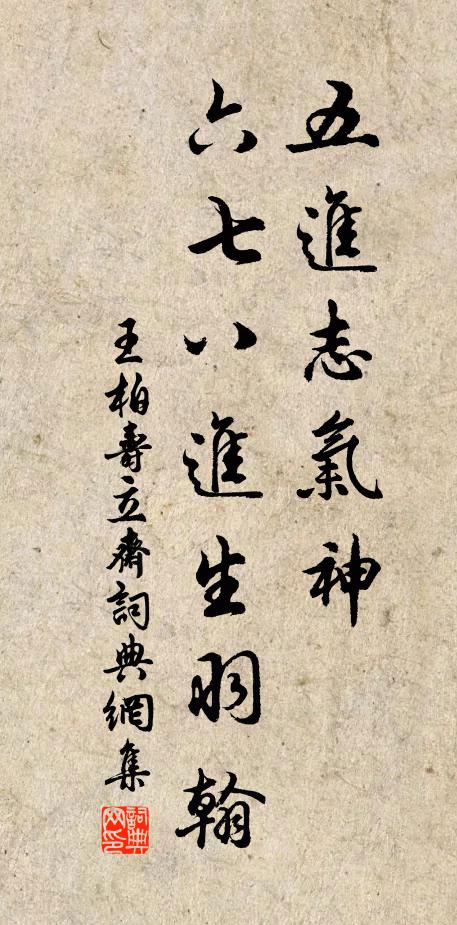 五進志氣神
六七八進生羽翰
王柏壽立齋詞典網集
詞典
网印